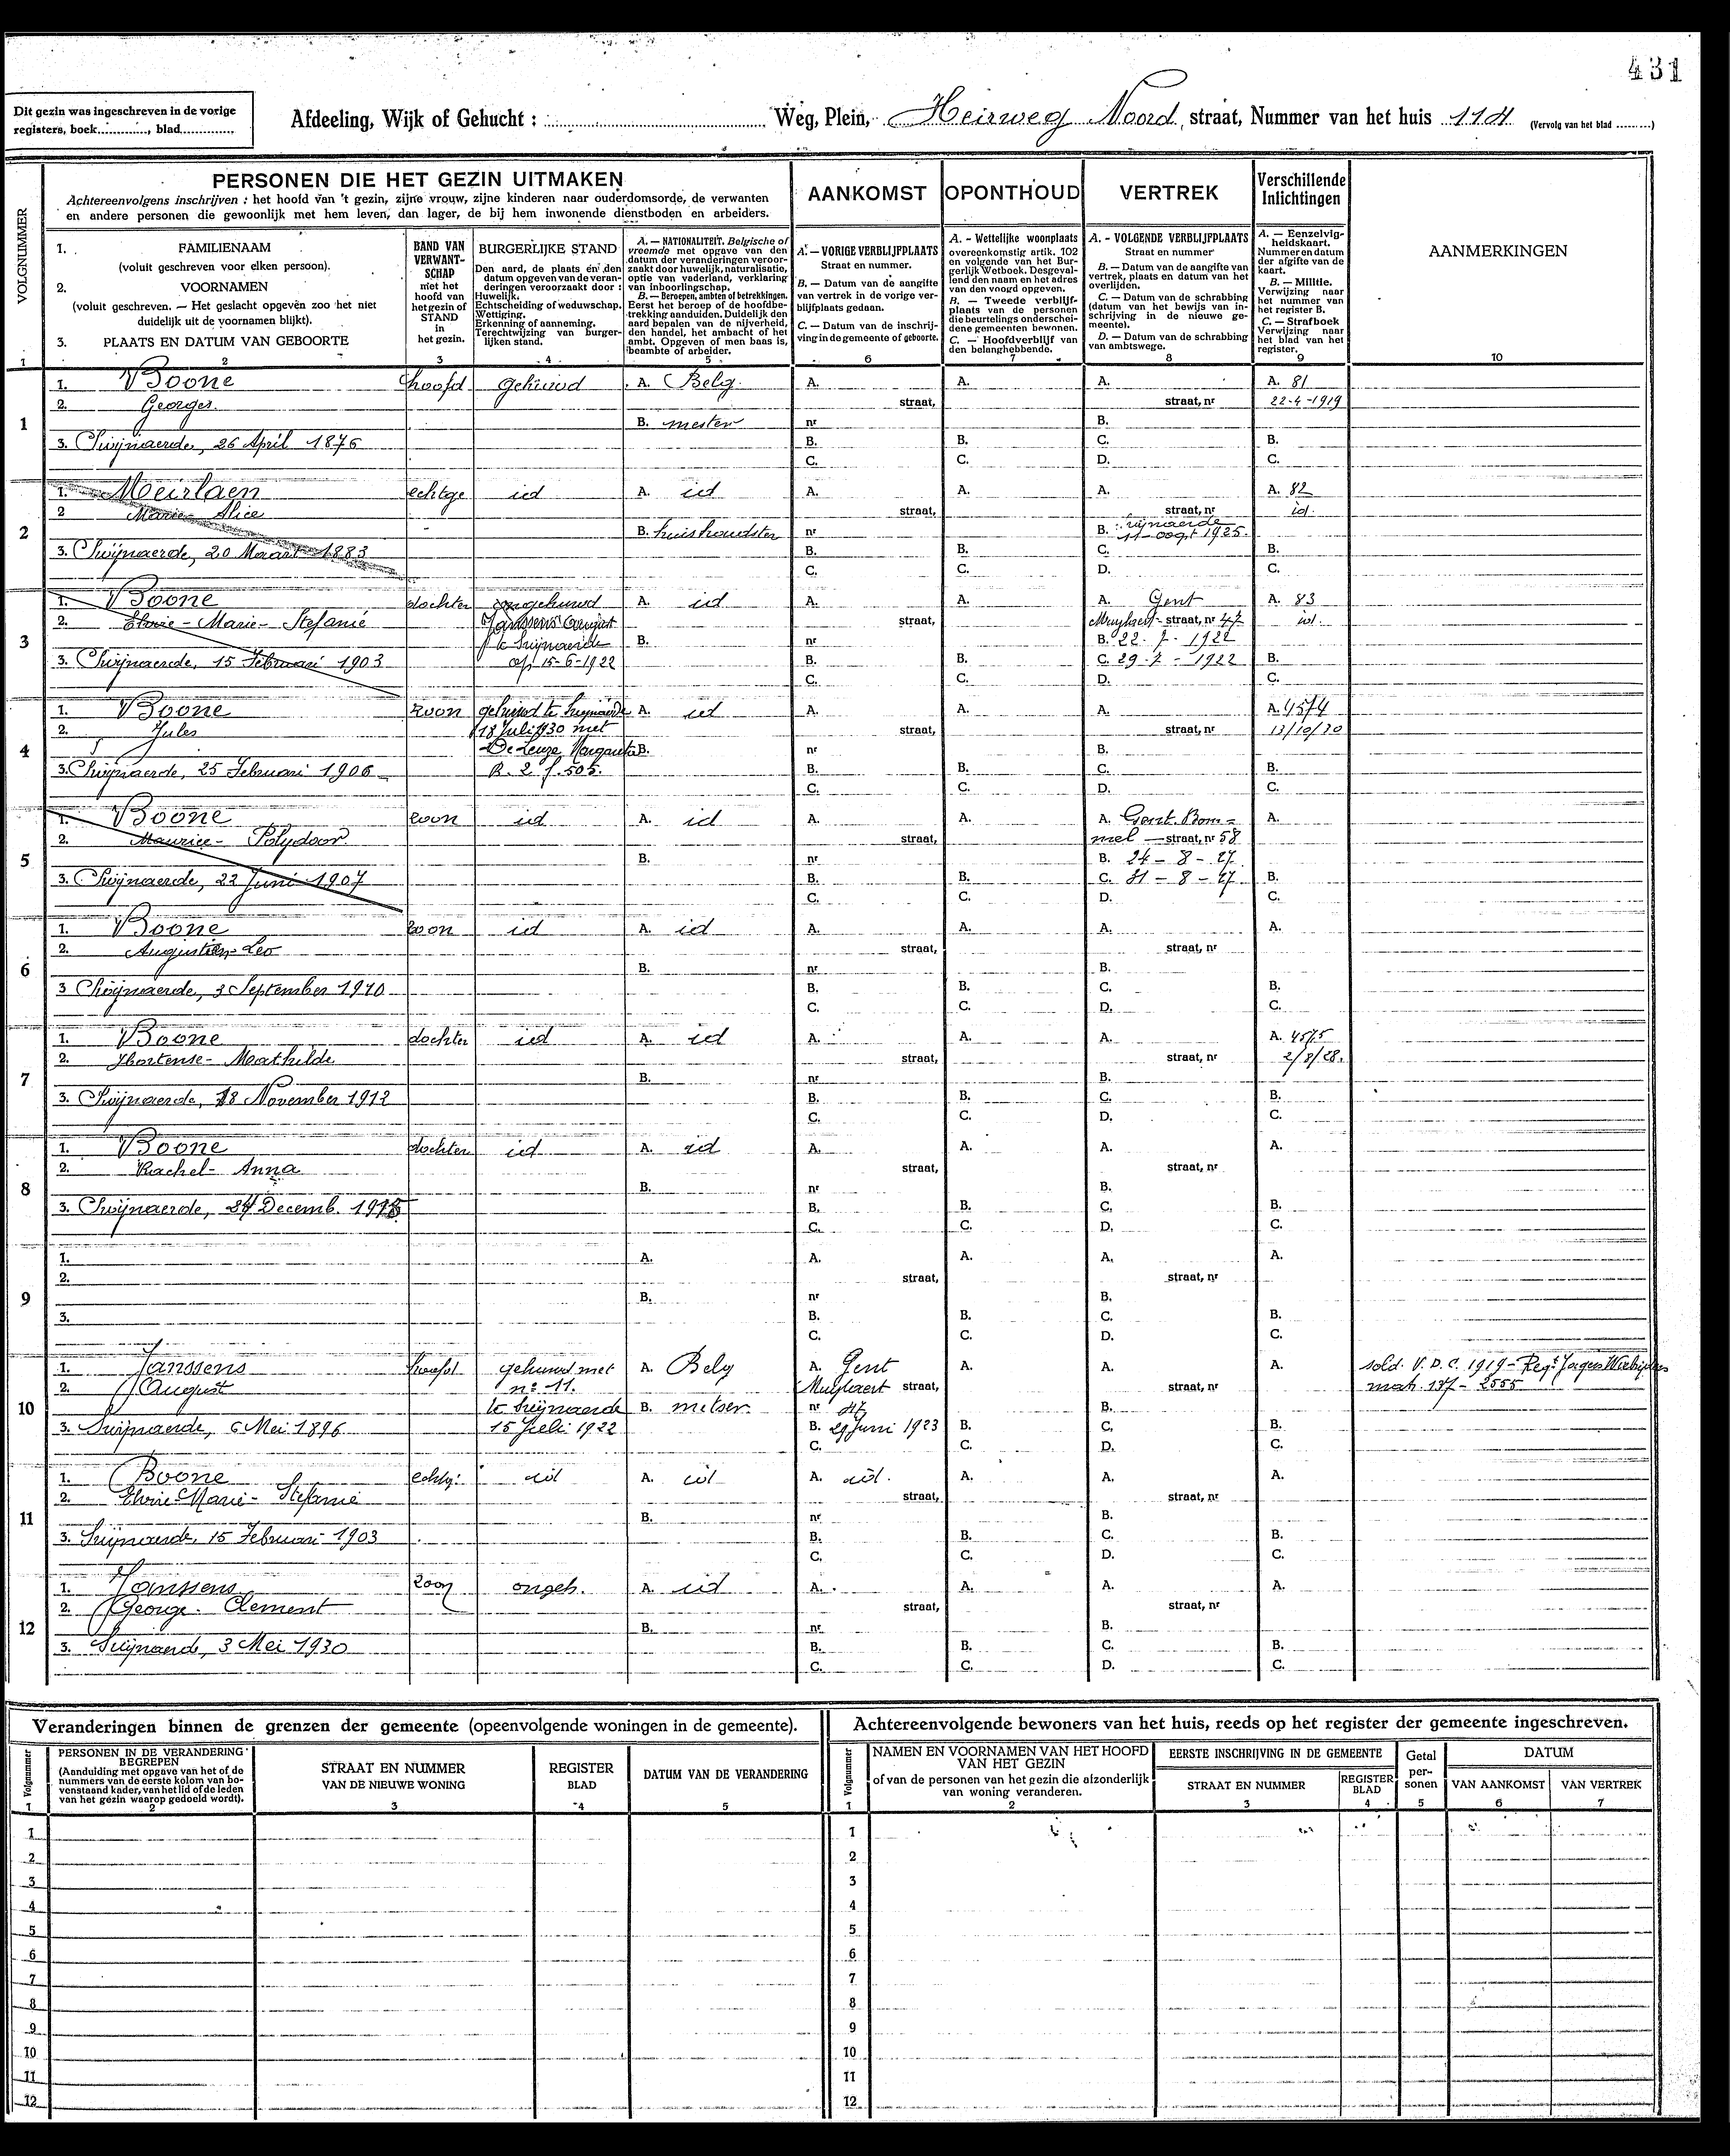 431
Dit gezin was ingeschreven in de vorige
registers, boek............, blad..............
Afdeeling, Wijk of Gehucht : Weg, Plein, Heirweg Noord, straat, Nummer van het huis 114 (Vervolg van het blad .........)
PERSONEN DIE HET GEZIN UITMAKEN
Achtereenvolgens inschrijven : het hoofd van 't gezin, zijne vrouw, zijne kinderen naar ouderdomsorde, de verwanten
en andere personen die gewoonlijk met hem leven, dan lager, de bij hem inwonende dienstboden en arbeiders.
AANKOMST
OPONTHOUD
VERTREK
Verschillende
Inlichtingen
VOLGNUMMER
1. FAMILIENAAM
(voluit geschreven voor elken persoon).
2. VOORNAMEN
(voluit geschreven. — Het geslacht opgeven zoo het niet
duidelijk uit de voornamen blijkt).
3. PLAATS EN DATUM VAN GEBOORTE
BAND VAN
VERWANT-
SCHAP
met het
hoofd van
het gezin of
STAND
in
het gezin.
BURGERLIJKE STAND
Den aard, de plaats en den
datum opgeven van de veran-
deringen veroorzaakt door :
Huwelijk.
Echtscheiding of weduwschap.
Wettiging.
Erkenning of aanneming.
Terechtwijzing van burger-
lijken stand.
A. — NATIONALITEIT. Belgische of
vreemde met opgave van den
datum der veranderingen veroor-
zaakt door huwelijk, naturalisatie,
optie van vaderland, verklaring
van inboorlingschap.
B. — Beroepen, ambten of betrekkingen.
Eerst het beroep of de hoofdbe-
trekking aanduiden. Duidelijk den
aard bepalen van de nijverheid,
den handel, het ambacht of het
ambt. Opgeven of men baas is,
beambte of arbeider.
A. — VORIGE VERBLIJFPLAATS
Straat en nummer.
B. — Datum van de aangifte
van vertrek in de vorige ver-
blijfplaats gedaan.
C. — Datum van de inschrij-
ving in de gemeente of geboorte.
A. - Wettelijke woonplaats
overeenkomstig artik. 102
en volgende van het Bur-
gerlijk Wetboek. Desgeval-
lend den naam en het adres
van den voogd opgeven.
B. — Tweede verblijf-
plaats van de personen
die beurtelings onderschei-
dene gemeenten bewonen.
C. — Hoofdverblijf van
den belanghebbende.
A. - VOLGENDE VERBLIJFPLAATS
Straat en nummer
B. — Datum van de aangifte van
vertrek, plaats en datum van het
overlijden.
C. — Datum van de schrabbing
(datum van het bewijs van in-
schrijving in de nieuwe ge-
meente).
D. — Datum van de schrabbing
van ambtswege.
A. — Eenzelvig-
heidskaart.
Nummer en datum
der afgifte van de
kaart.
B. — Militie.
Verwijzing naar
het nummer van
het register B.
C. — Strafboek
Verwijzing naar
het blad van het
register.
AANMERKINGEN
1 2 3 4 5 6 7 8 9 10
1
1. Boone hoofd gehuwd A. Belg A. A. A. A. 81
2. Georges straat, straat, nr 22-4-1919
B. mester nr B.
3. Swijnaerde, 26 April 1876 B. B. C. B.
C. C. D. C.
2
1. Meirlaen echtge id A. id A. A. A. A. 82
2 Marie-Alice straat, straat, nr id.
B. huishoudster nr B. Swijnaerde 11-oogt 1925
3. Swijnaerde, 20 Maart 1883 B. B. C. B.
C. C. D. C.
3
1. Boone dochter ongehuwd A. id A. A. A. Gent A. 83
2. Elvire-Marie-Stefanie Janssens August straat, straat, nr 47 id.
te Swijnaerde B. nr B. 22-7-1922
3. Swijnaerde, 15 Februari 1903 op 15-6-1922 B. B. C. 29-7-1922 B.
C. C. D. C.
4
1. Boone zoon gehuwd te Swijnaerde A. id A. A. A. A. 4574
2. Jules 18 Juli 1930 met straat, straat, nr 13/10/30
De Leuze Margareta B. nr B.
3. Swijnaerde, 25 Februari 1906 R. 2 f. 505. B. B. C. B.
C. C. D. C.
5
1. Boone zoon id A. id A. A. A. Gent. Bom= A.
2. Maurice-Polydoor straat, mel straat, nr 58
B. nr B. 24-8-27
3. Swijnaerde, 22 Juni 1907 B. B. C. 31-8-27 B.
C. C. D. C.
6
1. Boone zoon id A. id A. A. A. A.
2. Augustien-Leo straat, straat, nr
B. nr B.
3 Swijnaerde, 3 September 1910 B. B. C. B.
C. C. D. C.
7
1. Boone dochter id A. id A. A. A. A. 4575
2. Hortense-Mathilde straat, straat, nr 2/8/28.
B. nr B.
3. Swijnaerde, 18 November 1912 B. B. C. B.
C. C. D. C.
8
1. Boone dochter id A. id A. A. A. A.
2. Rachel-Anna straat, straat, nr
B. nr B.
3. Swijnaerde, 24 Decemb. B. B. C. B.
C. C. D. C.
9
1. A. A. A. A. A.
2. straat, straat, nr
B. nr B.
3. B. B. C. B.
C. C. D. C.
10
1. Janssens hoofd gehuwd met A. Belg A. Gent A. A. A. sold. V.D.C. 1919 - Regt Jagers
2. August n: 11. straat, straat, nr mat. 137-2555
te Swijnaerde B. metser nr 47 B.
3. Swijnaerde, 6 Mei 1896 15 Juli 1922 B. 29 Juni 1923 B. C. B.
C. C. D. C.
11
1. Boone echtg: id A. id A. id. A. A. A.
2. Elvire-Marie-Stefanie straat, straat, nr
B. nr B.
3. Swijnaerde, 15 Februari 1903 B. B. C. B.
C. C. D. C.
12
1. Janssens zoon ongeh. A. id A. A. A. A.
2. George-Clement straat, straat, nr
B. nr B.
3. Swijnaerde, 3 Mei 1930 B. B. C. B.
C. C. D. C.
Veranderingen binnen de grenzen der gemeente (opeenvolgende woningen in de gemeente).
Volgnummer
PERSONEN IN DE VERANDERING
BEGREPEN
(Aanduiding met opgave van het of de
nummers van de eerste kolom van bo-
venstaand kader, van het lid of de leden
van het gezin waarop gedoeld wordt).
STRAAT EN NUMMER
VAN DE NIEUWE WONING
REGISTER
BLAD
DATUM VAN DE VERANDERING
1 2 3 4 5
1
2
3
4
5
6
7
8
9
10
11
12
Achtereenvolgende bewoners van het huis, reeds op het register der gemeente ingeschreven.
Volgnummer
NAMEN EN VOORNAMEN VAN HET HOOFD
VAN HET GEZIN
of van de personen van het gezin die afzonderlijk
van woning veranderen.
EERSTE INSCHRIJVING IN DE GEMEENTE
STRAAT EN NUMMER
REGISTER
BLAD
Getal
per-
sonen
DATUM
VAN AANKOMST
VAN VERTREK
1 2 3 4 5 6 7
1
2
3
4
5
6
7
8
9
10
11
12